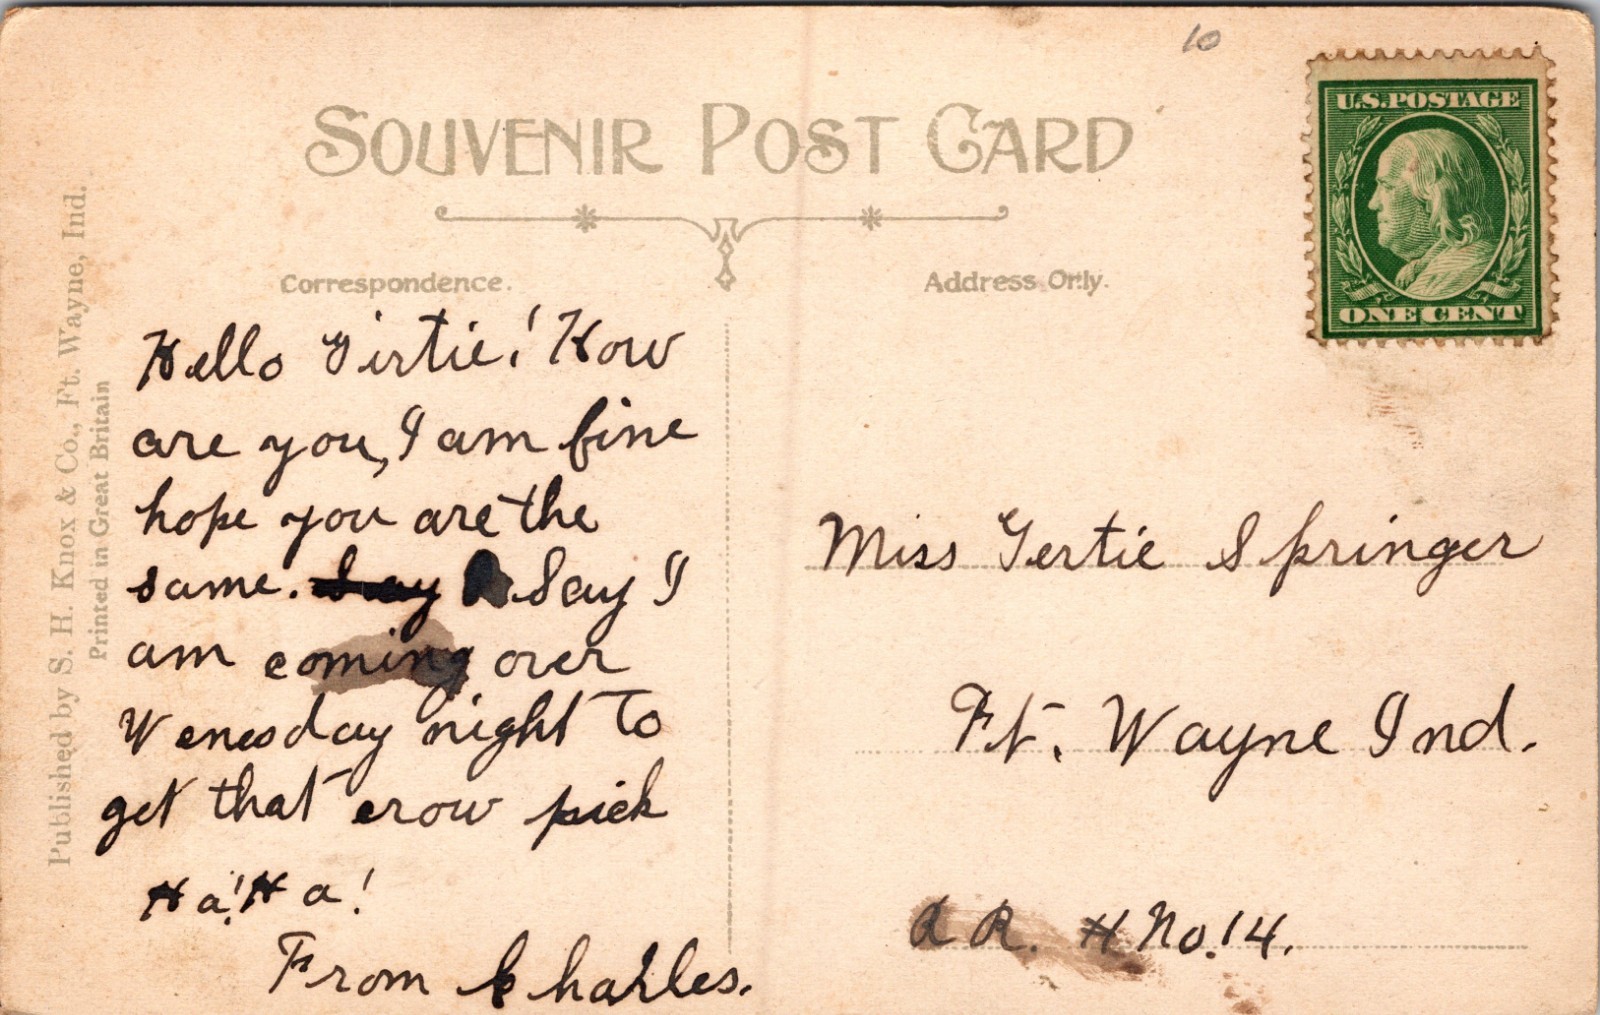 10
SOUVENIR POST CARD
U.S. POSTAGE
ONE CENT
Correspondence.
Address Only.
Published by S. H. Knox & Co., Ft. Wayne, Ind.
Printed in Great Britain
Hello Girtie! How
are you, I am fine
hope you are the
same. Say Say I
am coming over
Wenesday night to
get that crow pick
Ha! Ha!
From Charles.
Miss Gertie Springer
Ft. Wayne Ind.
R. No. 14.